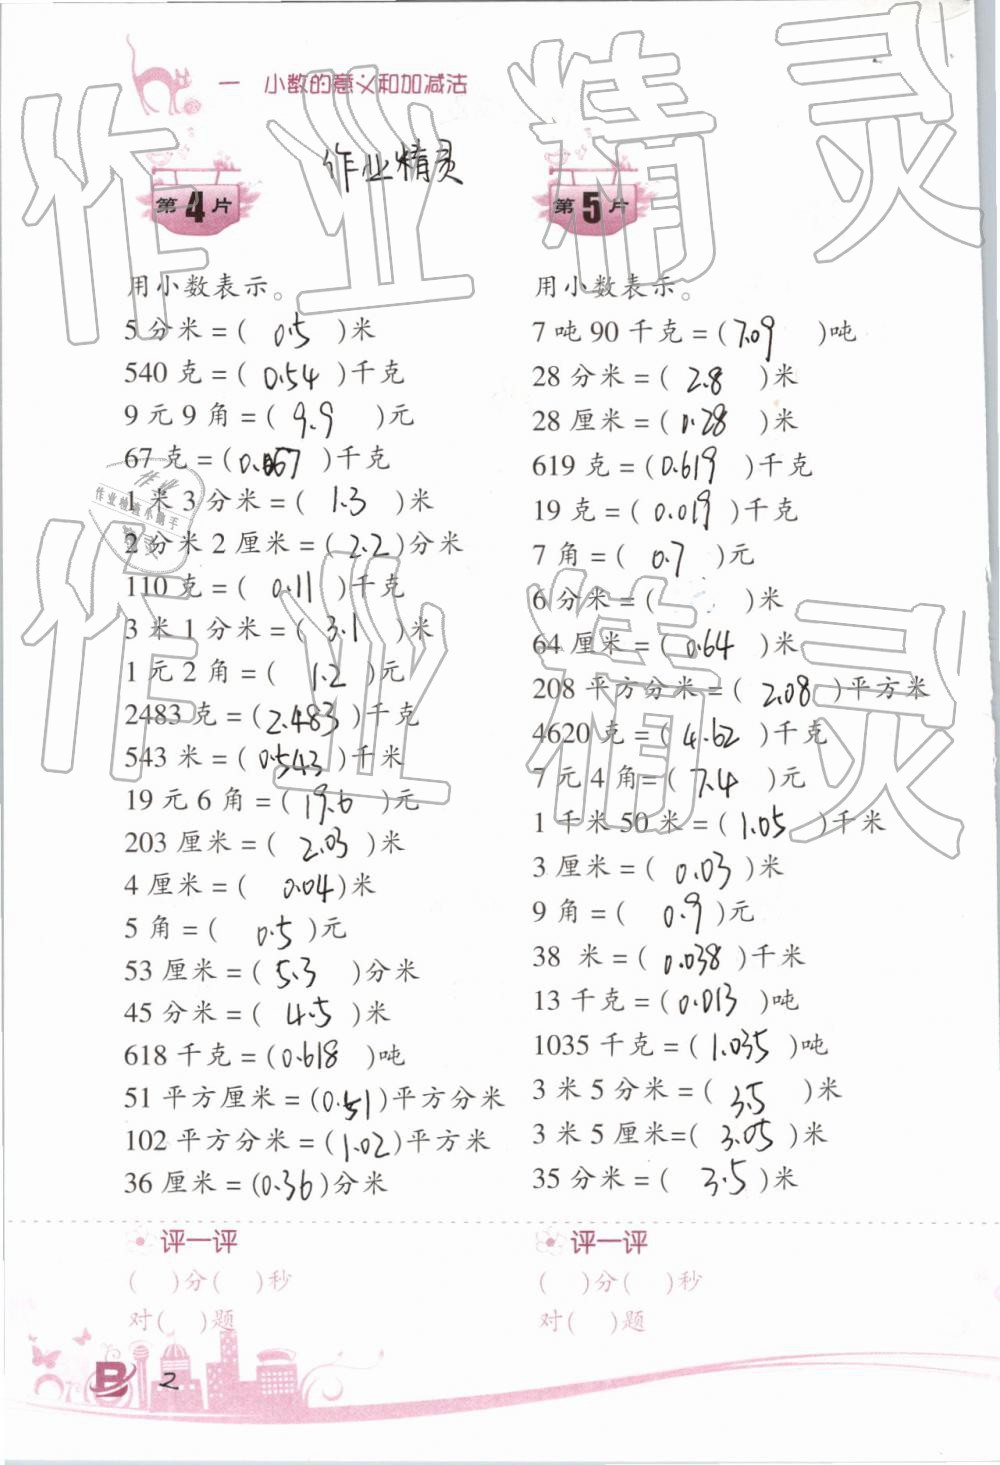 一 小数的意义和加减法
作业精灵
第4片
用小数表示。
5分米=( 0.5 )米
540克=( 0.54 )千克
9元9角=( 9.9 )元
67克=(0.067)千克
1米3分米=( 1.3 )米
2分米2厘米=(2.2)分米
110克=( 0.11 )千克
3米1分米=( 3.1 )米
1元2角=( 1.2 )元
2483克=(2.483)千克
543米=(0.543)千米
19元6角=(19.6)元
203厘米=( 2.03 )米
4厘米=( 0.04)米
5角=( 0.5 )元
53厘米=( 5.3 )分米
45分米=( 4.5 )米
618千克=(0.618)吨
51平方厘米=(0.51)平方分米
102平方分米=(1.02)平方米
36厘米=(0.36)分米
评一评
( )分( )秒
对( )题
第5片
用小数表示。
7吨90千克=(7.09 )吨
28分米=( 2.8 )米
28厘米=( 0.28 )米
619克=(0.619)千克
19克=( 0.019 )千克
7角=( 0.7 )元
6分米=( )米
64厘米=( 0.64 )米
208平方分米=( 2.08 )平方米
4620克=( 4.62 )千克
7元4角=( 7.4 )元
1千米50米=( 1.05 )千米
3厘米=( 0.03 )米
9角=( 0.9 )元
38 米=( 0.038 )千米
13千克=(0.013 )吨
1035千克=( 1.035 )吨
3米5分米=( 3.5 )米
3米5厘米=( 3.05 )米
35分米=( 3.5 )米
评一评
( )分( )秒
对( )题
B 2
作业精灵
作业精灵
作业
作业检查小助手
精灵